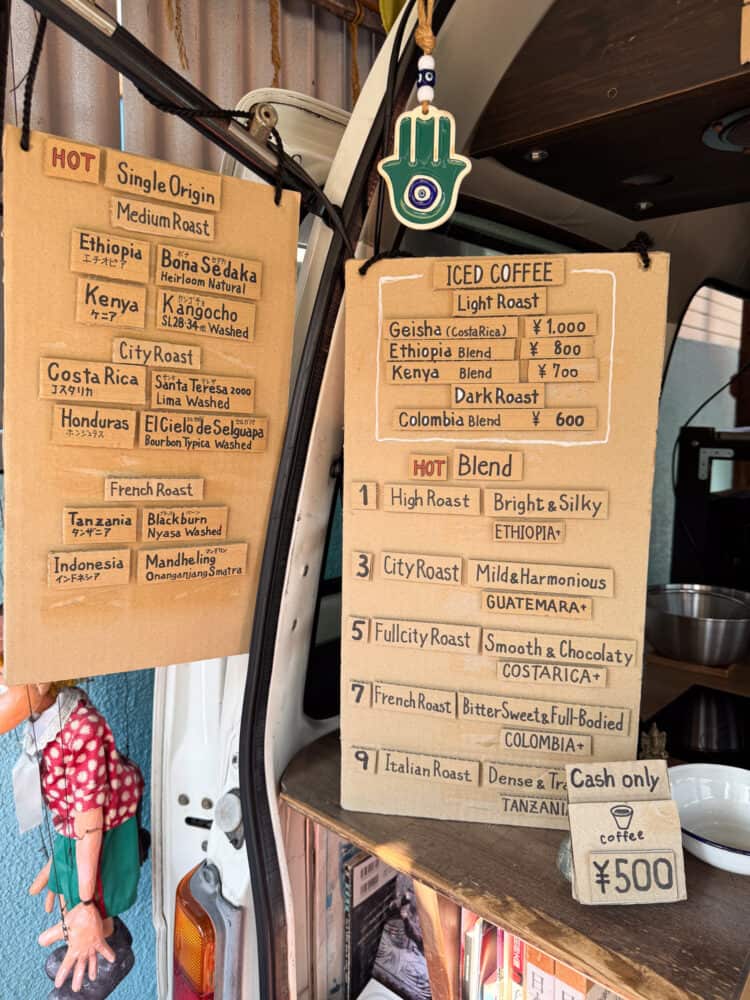 HOT Single Origin
Medium Roast
Ethiopia
エチオピア
Bona Sedaka
Heirloom Natural
Kenya
ケニア
Kangocho
SL28・34・他 Washed
City Roast
Costa Rica
コスタリカ
Santa Teresa 2000
Lima Washed
Honduras
ホンジュラス
El Cielo de Selguapa
Bourbon Typica Washed
French Roast
Tanzania
タンザニア
Blackburn
Nyasa Washed
Indonesia
インドネシア
マンデリン
Mandheling
Onanganjang Smatra
ICED COFFEE
Light Roast
Geisha (Costa Rica) ¥1,000
Ethiopia Blend ¥ 800
Kenya Blend ¥ 700
Dark Roast
Colombia Blend ¥ 600
HOT Blend
1 High Roast Bright & Silky
ETHIOPIA+
3 City Roast Mild & Harmonious
GUATEMARA+
5 Fullcity Roast Smooth & Chocolaty
COSTARICA+
7 French Roast BitterSweet & Full-Bodied
COLOMBIA+
9 Italian Roast Dense &
TANZANIA
Cash only
coffee
¥500